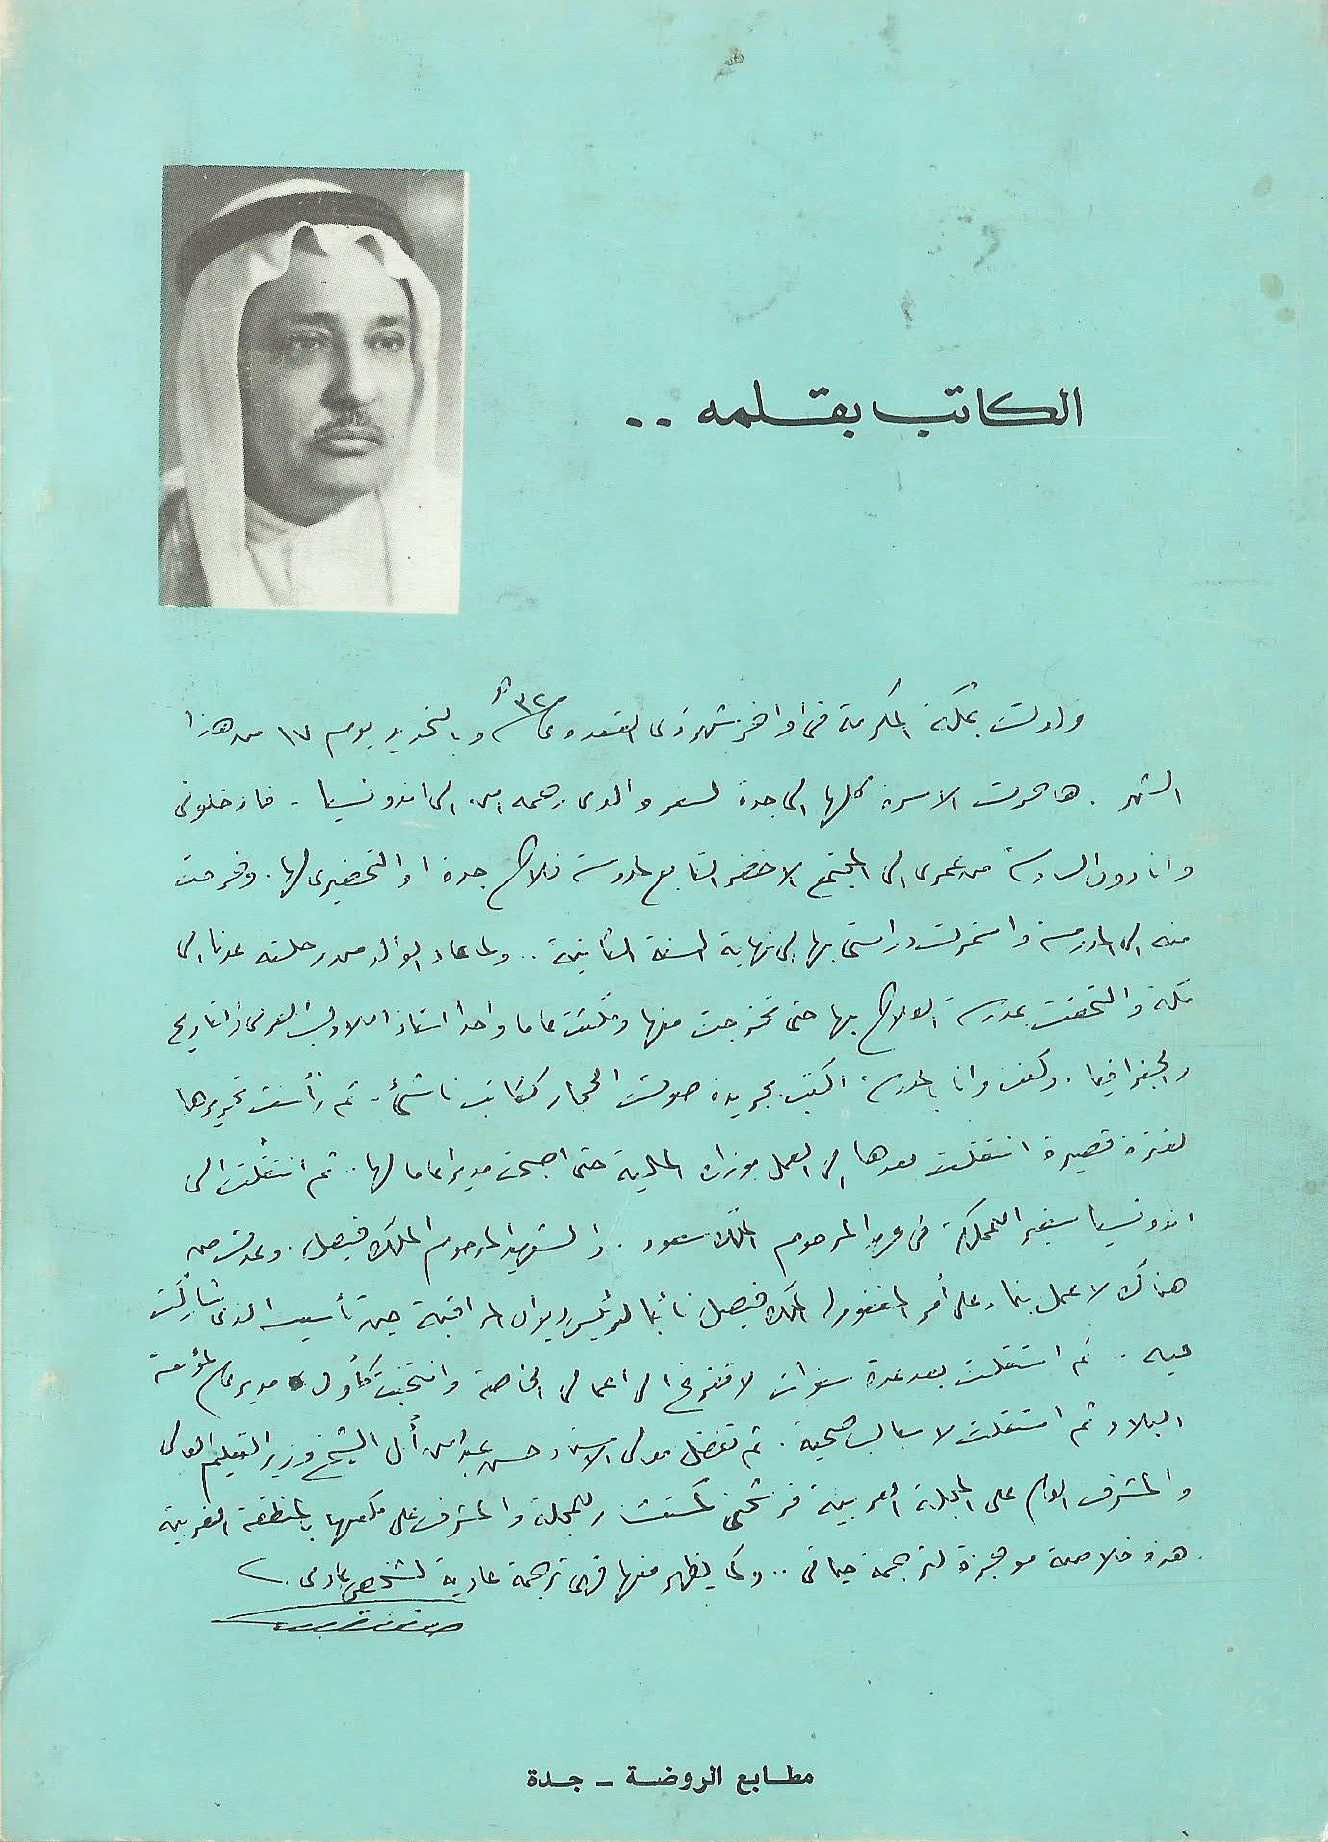 الكاتب بقلمه ..
ولدت بمكة المكرمة فى اواخر شهر ذى القعدة عام ٣٢ وبالتحديد يوم ١٧ من هذا
الشهر . هاجرت الاسرة كلها الى جدة لسفر والدى رحمه الله الى اندونسيا - فادخلونى
وانا دون السادسة من عمرى الى المجتمع الاخضر التابع لمدرسة فلاح جدة او التحضيرى لها . وتخرجت
منه الى المدرسة واستمرت دراستى بها الى نهاية السنة الثانية .. ولما عاد الوالد من رحلته عدنا الى
مكة والتحقت بمدرسة الفلاح بها حتى تخرجت منها ومكثت عاما واحدا استاذا للادب العربى والتاريخ
والجغرافيا . وكنت وانا بالمدرسة اكتب بجريدة صوت الحجاز ككاتب ناشئ - ثم رأست تحريرها
لفترة قصيرة انتقلت بعدها الى العمل بوزارة المالية حتى اصبحت مديرا عاما لها .. ثم انتقلت الى
اندونسيا سفيرا للمملكة فى عهد المرحوم الملك سعود . والشهيد المرحوم الملك فيصل . وعدت من
هناك لاعمل بناء على أمر المغفور له الملك فيصل نائبا لرئيس ديوان المراقبة حين تأسيسه الذى شاركت
فيه . ثم استقلت بعد عدة سنوات لاتفرغ الى اعمالى الخاصة وانتخبت كأول مدير عام لمؤسسة
البلاد ثم استقلت لاسباب صحية . ثم تفضل معالى الاستاذ حسن عبدالله آل الشيخ وزير التعليم العالى
والمشرف العام على المجلة العربية فرشحنى كمستشار للمجلة والمشرف على مكتبها بالمنطقة الغربية
. هذه خلاصة موجزة لترجمة حياتى .. وكما يظهر منها فهى ترجمة عادية لشخص عادى .
مطابع الروضة - جدة